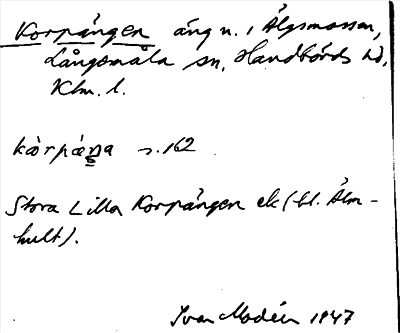 Korpången äng n. i Älgsmossen,
Långemåla sn, Handbörds hd,
Klm. l.
kàrpáṉa s. 162
Stora Lilla Korpången ek (bl. Älm-
hult).
Ivar Modéer 1947